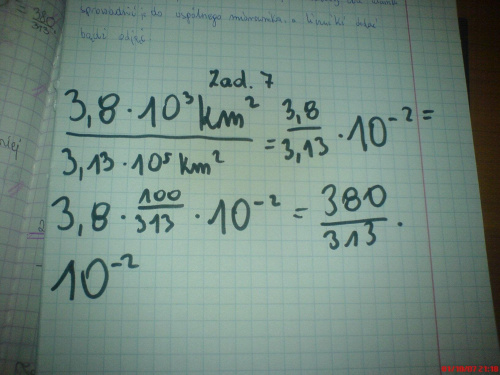 sprowadzić je do wspólnego mianownika, a liczniki dodać
bądź odjąć
380
313
Zad. 7
3,8 · 10³ km² / 3,13 · 10⁵ km² = 3,8 / 3,13 · 10⁻² =
3,8 · 100/313 · 10⁻² = 380/313 ·
10⁻²